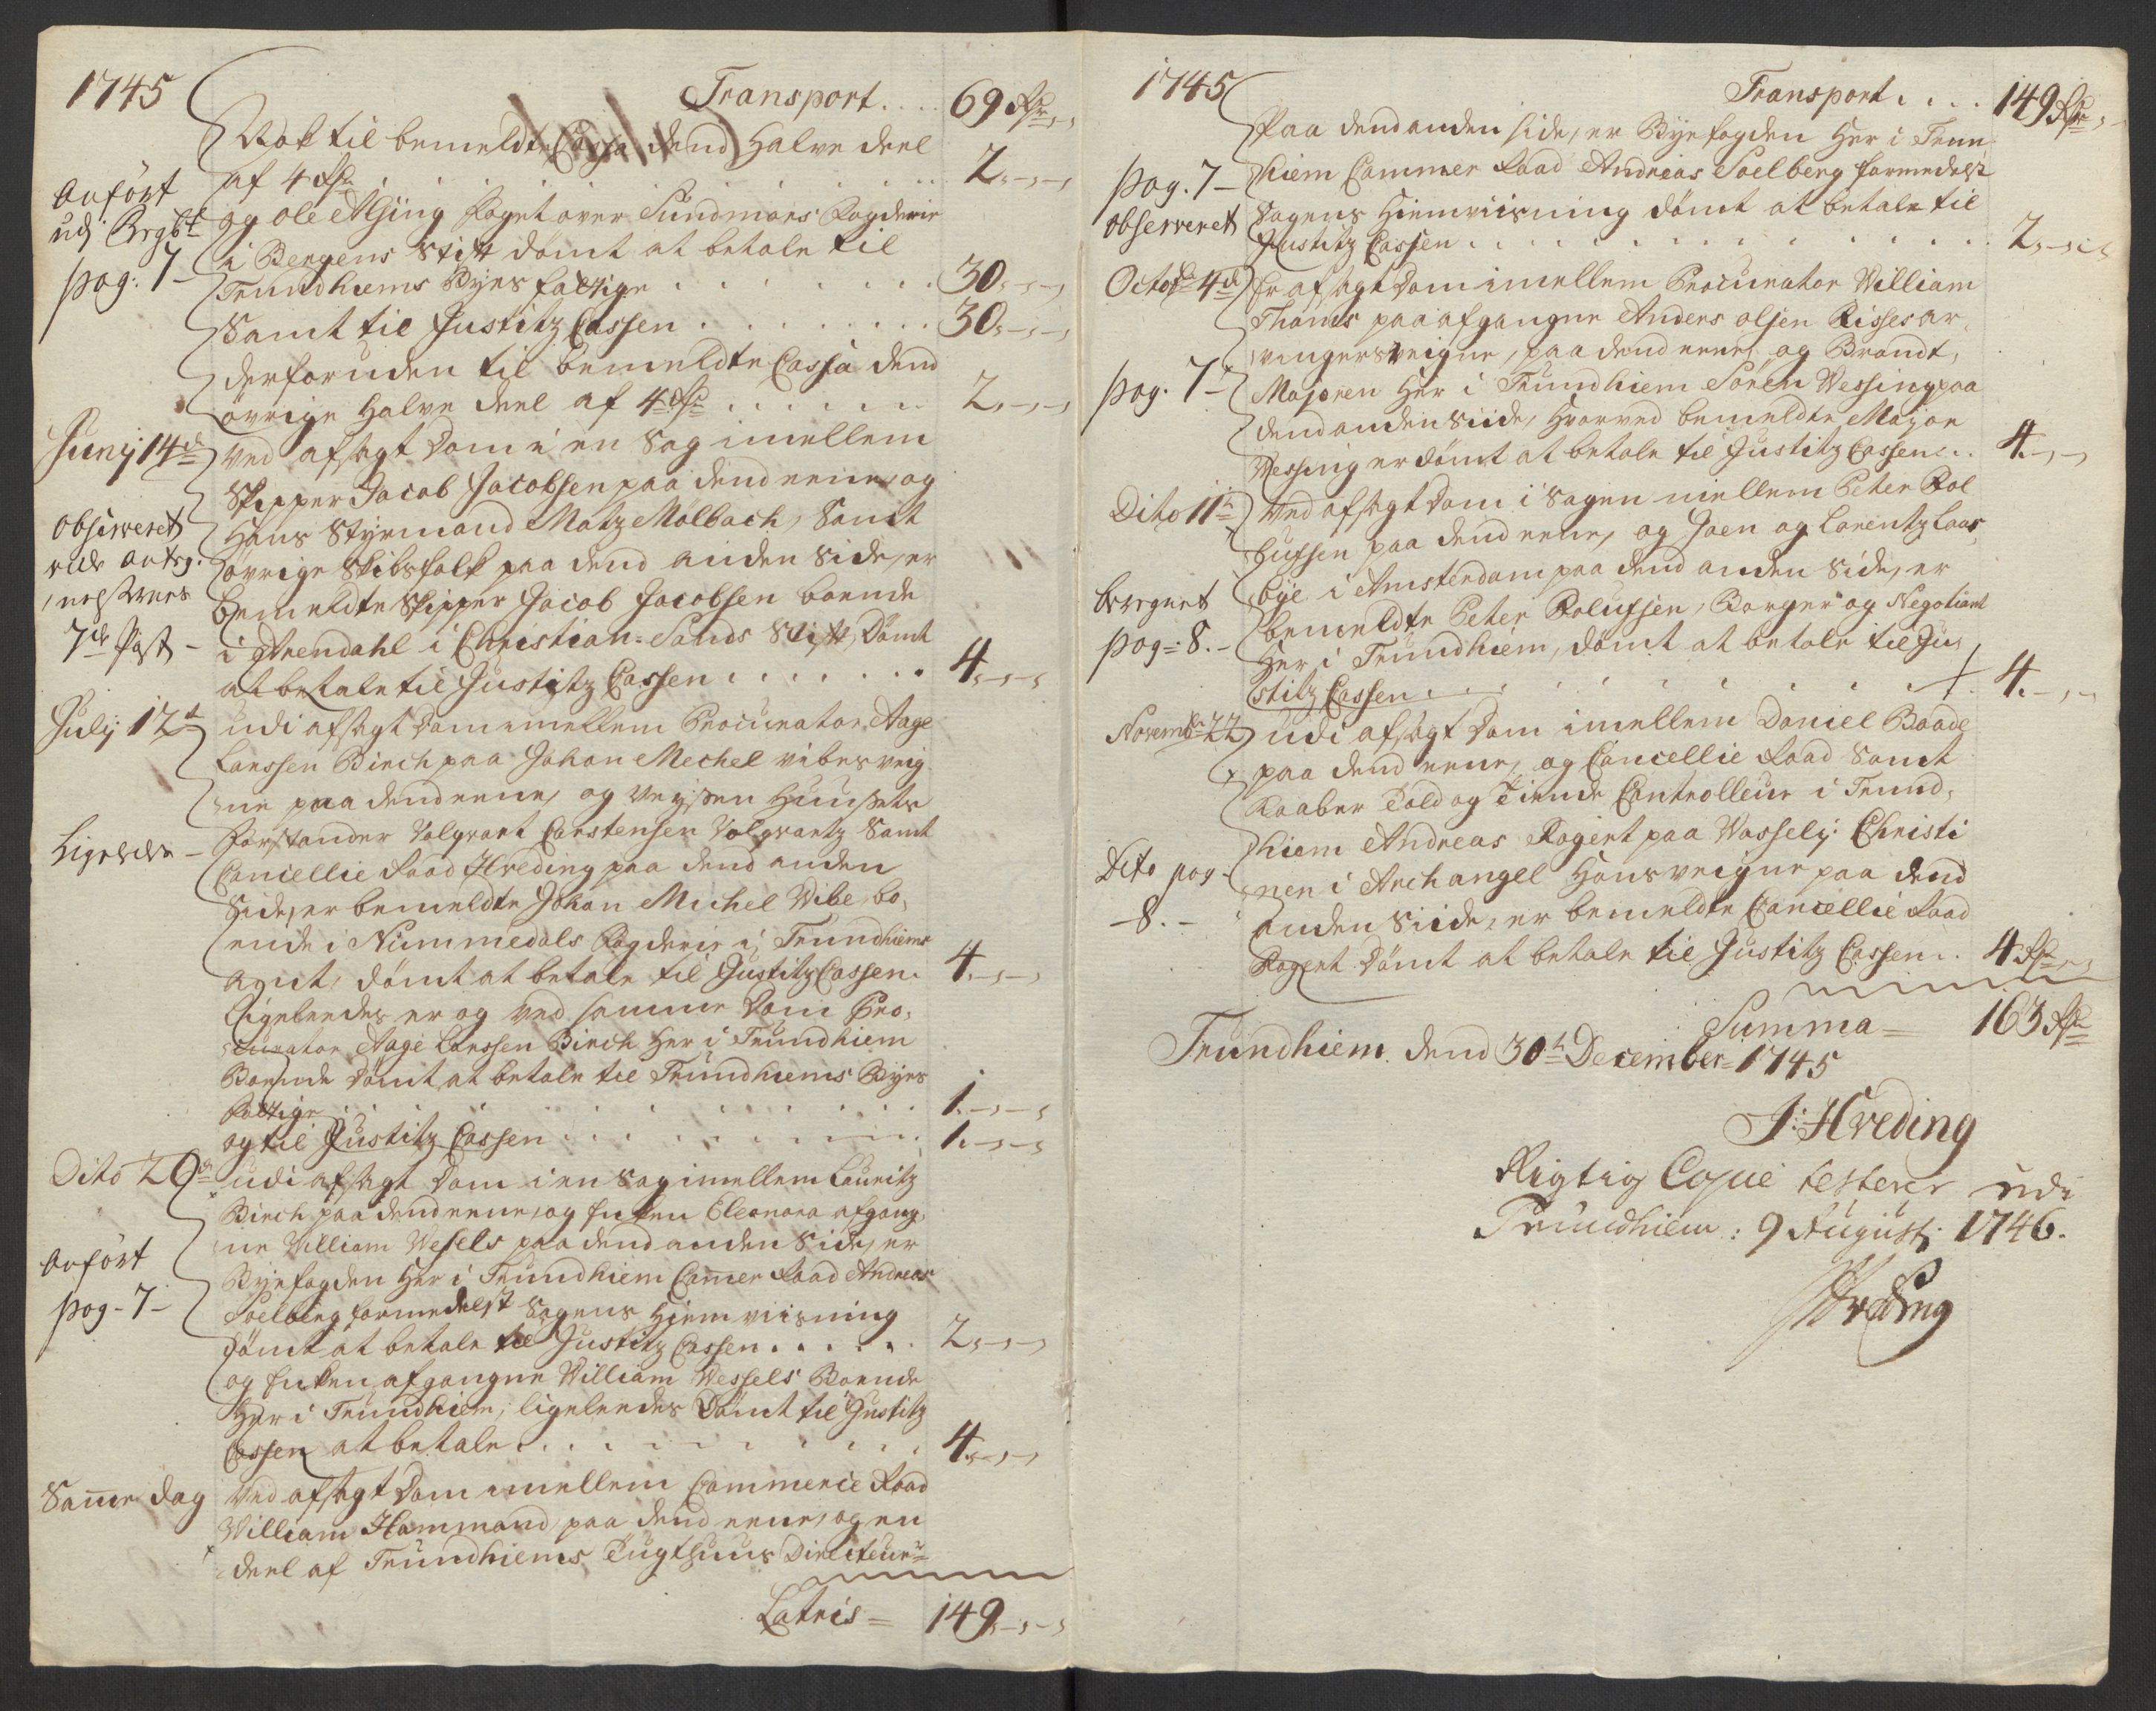 1745
Transport.... 69 Rdr
Rok til bemeldte Cassa dend Halve deel
af 4 Rdr . . . . . . 2,-,-,
Anført
udj Regbl
pag: 7-
og Ole Alsing Foget over Sundmørs Fogderie
i Bergens Stift dømt at betale til
Trundhiems Byes fattige . . . . . . . 30,-,-,
Samt til Justitz Cassen . . . . . . . . 30,-,-,
derforuden til bemeldte Cassa dend
øvrige Halve deel af 4 Rdr . . . . . . 2,-,-,
Junij 14de
Ved afsagt Dom i en Sag imellem
Skipper Jacob Jacobsen paa dend eene, og
Hans Styrmand Matz Mølbach, Samt
Observeret
øvrige Skibsfolk paa dend anden Side, er
bemeldte Skipper Jacob Jacobsen boende
7de Post -
i Arendahl i Christian-Sands Stift, Dømt
at betale til Justitz Cassen . . . . . . . 4,-,-,
July 12te
udi afsagt Dom imellem Procurator Aage
Larssen Birch paa Johan Mechel vibes veig-
ne paa dend eene, og Veysen Huusets
Ligeledes -
Forstander Volqvart Carstensen Volqvartz Samt
Cancellie Raad Hveding paa dend anden
Side, er bemeldte Johan Michel Wibe, bo,
ende i Nummedals Fogderie i Trundhiems
Amt, dømt at betale til Justitz Cassen. 4.-,-,
Ligeleedes er og ved samme Dom Pro,
curator Aage Larssen Birch Her i Trundhiem
Boende Dømt at betale til Trundhiems Byes
Fattige . . . . . . . . . 1.-,-,
og til Justitz Cassen . . . . . . . . 1.-,-,
Dito 29de
udi afsagt Dom i en Sag imellem Lauritz
Birch paa dend eene, og Enken Eleonora afgang,
ne William Wesels paa dend anden Side, er
Anført
pag-7-
Byefogden Her i Trundhiem Camer Raad Andreas
Soelberg formedelst Sagens Hiemviisning
dømt at betale til Justitz Cassen . . . . . . 2,-,-,
og Enken afgangne William Wessels Boende
Her i Trundhiem, ligeleedes Dømt til Justitz
Cassen at betale . . . . . . . . . . 4.-,-,
Same Dag
Ved afsagt Dom imellem Commerce Raad
William Hammand paa dend eene, og en
deel af Trundhiems Tugthuus Directeur
Latris = 149,-,-,
1745
Transport. . . . 149 Rdr
Paa dend anden side, er Byefogden Her i Trun
pag. 7-
hiem Cammer Raad Andreas Soelberg formedelst
Observeret
Sagens Hiemviisning dømt at betale til
Justitz Cassen . . . . . . . . . . . . 2,-,-,
Octobr 4de
Er afsagt Dom imellem Procurator William
Thams paa afgangne Anders Olsen Risses ar,
vingers veigne, paa dend eene, og Brandt,
pag. 7-
Majoren Her i Trundhiem Søren Wessing paa
dend anden Siide, Hvorved bemeldte Major
Wessing er dømt at betale til Justitz Cassen . . 4.-,-,
Dito 11te
Ved afsagt Dom i Sagen mellem Peter Rol
lufsen paa dend eene, og Joen og Larentz Laas,
bye i Amsterdam paa dend anden Side, er
beregnet
pag-8.-
bemeldte Peter Rolufsen, Borger og Negotiant
Her i Trundhiem, dømt at betale til Ju,
stitz Cassen . . . . . . . . 4.-,-,
Novembr 22
udi afsagt Dom imellem Daniel Baade
paa dend eene, og Cancellie Raad Samt
Kaaber Told og Tiende Controlleur i Trund,
hiem Andreas Rogert paa Wasselij Christi
Dito pag-
-8.-
nen i Archangel Hans veigne paa dend
anden Siide, er bemeldte Cancellie Raad
Rogert Dømt at betale til Justitz Cassen . . 4 Rdr
Summa = 163 Rdr
Trundhiem. dend 30te December 1745
J: Hveding
Rigtig Copie testerer udi
Trundhiem: 9 August: 1746.
JHveding